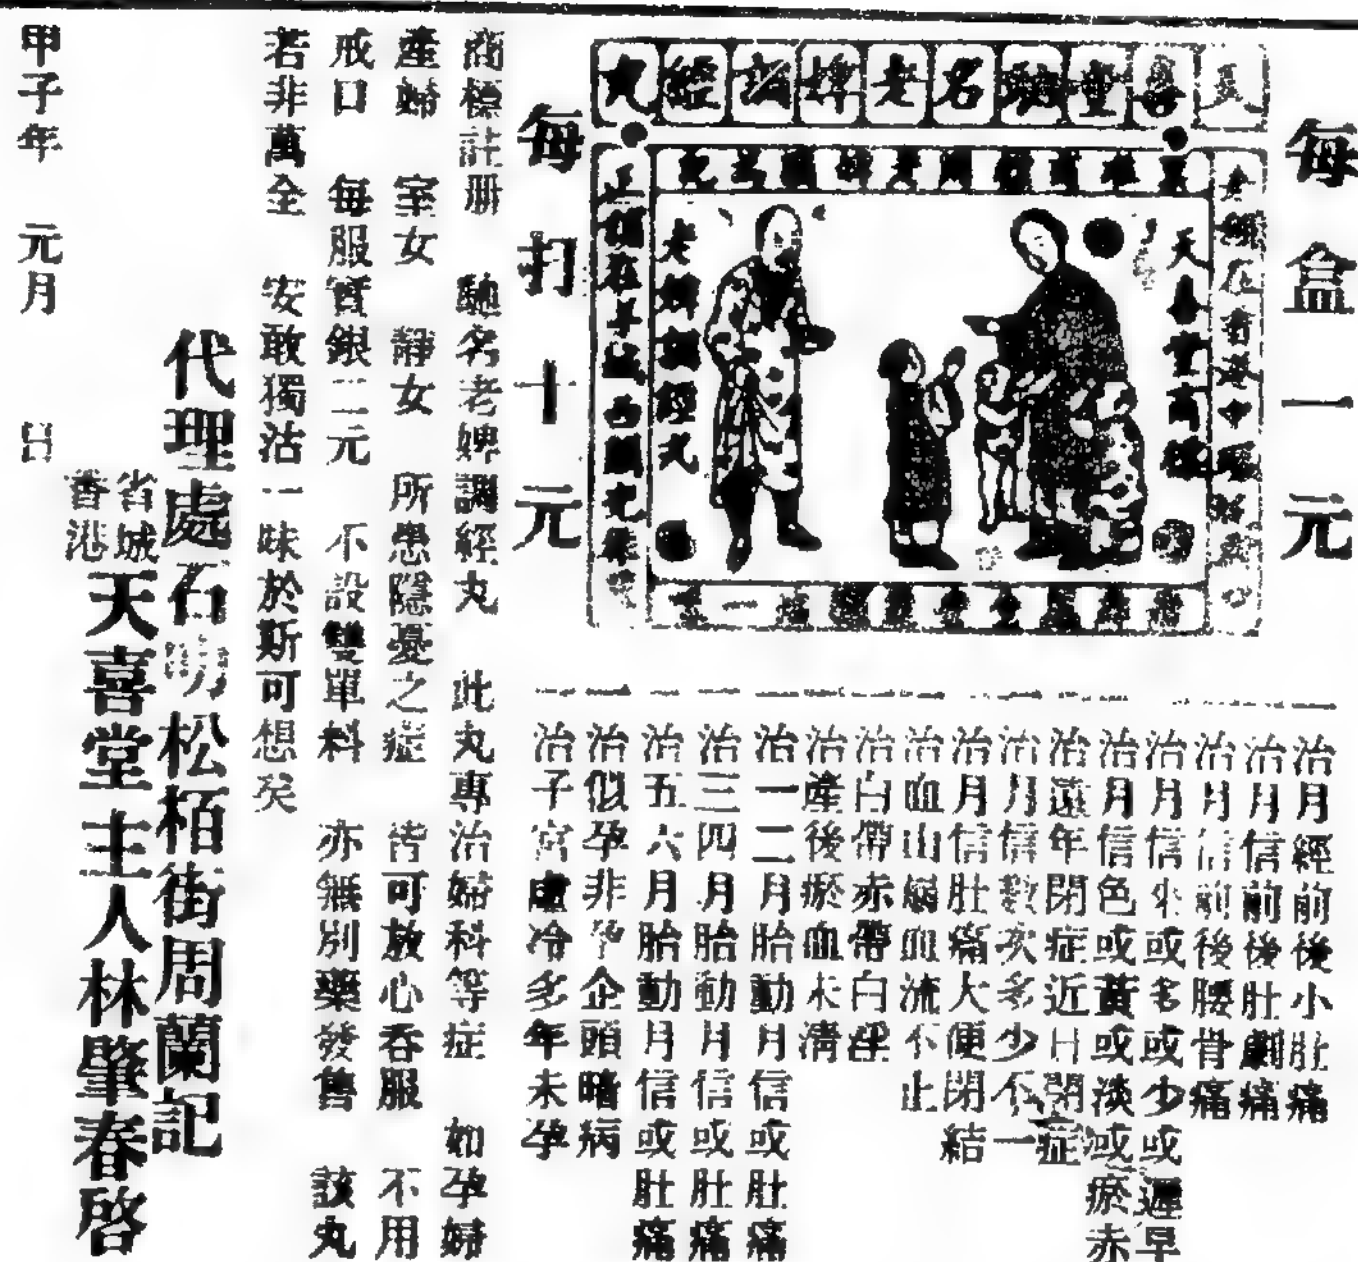 每盒一元
天喜堂馳名老婢調經丸
天喜堂商標
老婢調經丸
每打十元
治月經前後小肚痛
治月信前後肚劇痛
治月信前後腰骨痛
治月信來或多或少或遲早
治月信色或黃或淡或瘀赤
治遠年閉症近日閉症
治月信數次多少不一
治月信肚痛大便閉結
治血山崩血流不止
治白帶赤帶白淫
治產後瘀血未清
治一二月胎動月信或肚痛
治三四月胎動月信或肚痛
治五六月胎動月信或肚痛
治似孕非孕企頭暗病
治子宮虛冷多年未孕
商標註册 馳名老婢調經丸 此丸專治婦科等症 如孕婦
產婦 室女 靜女 所患隱憂之症 皆可放心吞服 不用
戒口 每服實銀二元 不設雙單料 亦無別藥發售 該丸
若非萬全 安敢獨沽一味於斯可想矣
代理處石叻松栢街周蘭記
省城
香港
天喜堂主人林肇春啓
甲子年 元月 日